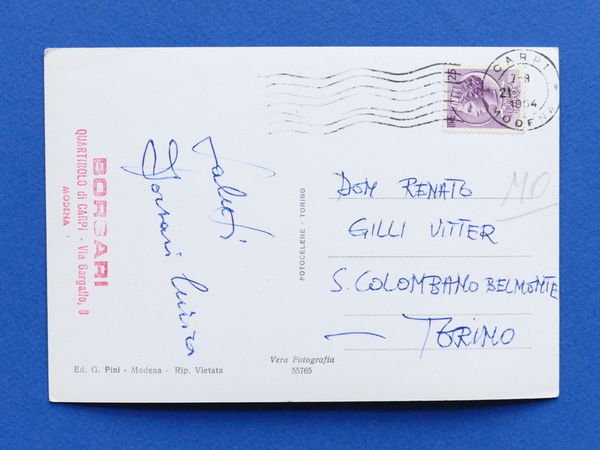 CARPI
7-8
21
1964
MODENA
25
BORSARI
QUARTIROLO di CARPI - Via Gargallo, 8
MODENA
Saluti
Borsari Luisa
FOTOCELERE - TORINO
DOM RENATO
MO
GILLI VITTER
S. COLOMBANO BELMONTE
— TORINO
Vera Fotografia
55765
Ed. G. Pini - Modena - Rip. Vietata